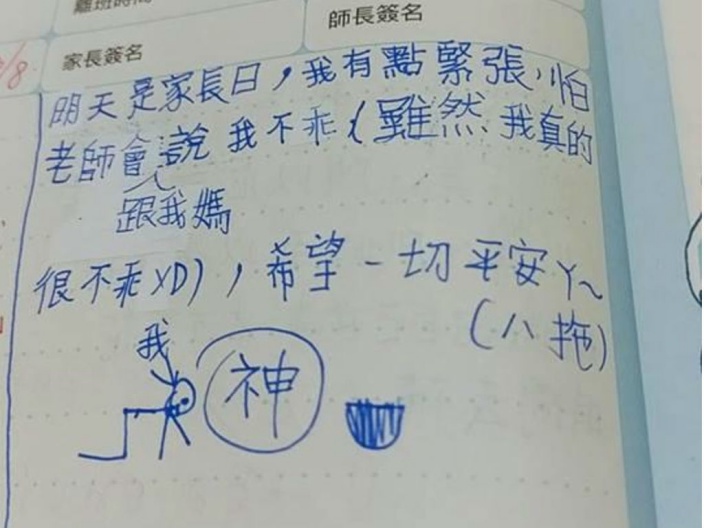 師長簽名
家長簽名
明天是家長日，我有點緊張，怕
老師會說我不乖（雖然我真的
跟我媽
很不乖XD），希望一切平安ㄚ~
（ㄅ拖）
我
神